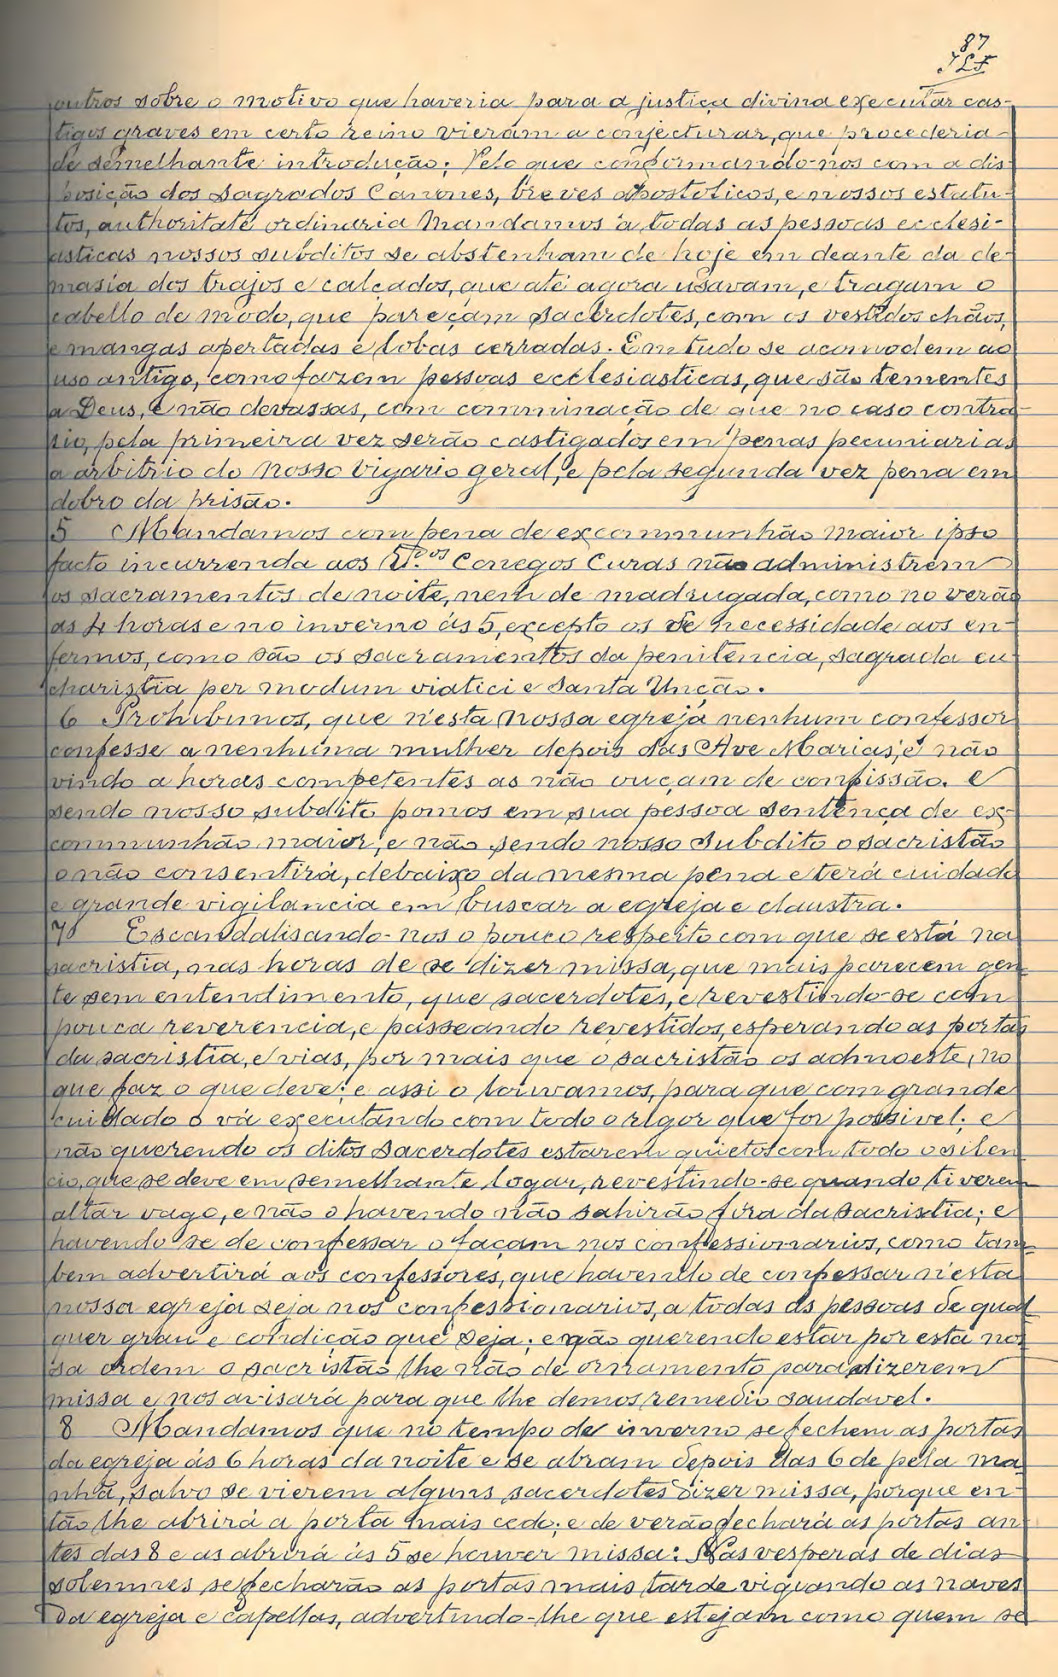 87
outros sobre o motivo que haveria para a justiça divina executar cas-
tigos graves em certo reino vieram a conjecturar, que procederia
de semelhante introducção; Pelo que conformando-nos com a dis-
posição dos Sagrados Canones, breves apostolicos, e nossos estatu-
tos, authoritate ordinaria Mandamos a todas as pessoas ecclesi-
asticas nossos subditos se abstenham de hoje em deante da de-
masia dos trajos e calçados, que até agora usavam, e tragam o
cabello de modo, que pareçam sacerdotes, com os vestidos chãos,
e mangas apertadas e lobas cerradas. Em tudo se acomodem ao
uso antigo, como fazem pessoas ecclesiasticas, que são tementes
a Deus, e não devassas, com comminação de que no caso contra-
rio, pela primeira vez serão castigados em penas pecuniarias
a arbitrio do Nosso Vigario geral, e pela segunda vez pena em
dobro da prisão.
5 Mandamos com pena de excommunhão maior ipso
facto incurrenda aos Conegos Curas não administrem
os sacramentos de noite, nem de madrugada, como no verão
as 4 horas e no inverno ás 5, excepto os de necessidade aos en-
fermos, como são os sacramentos da penitencia, sagrada eu-
charistia per modum viatici e Santa Unção.
6 Prohibimos, que n'esta nossa egreja nenhum confessor
confesse a nenhuma mulher depois das Ave Marias; e não
vindo a horas competentes as não ouçam de confissão. E
sendo nosso subdito pomos em sua pessoa sentença de ex-
communhão maior, e não sendo nosso Subdito o sacristão
o não consentirá, debaixo da mesma pena e terá cuidado
e grande vigilancia em buscar a egreja e claustra.
7 Escandalisando-nos o pouco respeito com que se está na
sacristia, nas horas de se dizer missa, que mais parecem gen-
te sem entendimento, que sacerdotes, e revestindo-se com
pouca reverencia, e passeando revestidos, esperando as portas
da sacristia, e vias, por mais que o sacristão os admoeste, no
que faz o que deve; e assi o louvamos, para que com grande
cuidado o vá executando com todo o rigor que for possivel; e
não querendo os ditos Sacerdotes estarem quietos com todo o silen-
cio, que se deve em semelhante logar, revestindo-se quando tiverem
altar vago, e não o havendo não sahirão fóra da Sacristia; e
havendo-se de confessar o façam nos confessionarios, como tam-
bem advertirá aos confessores, que havendo de confessar n'esta
nossa egreja seja nos confessionarios, a todas as pessoas de qual-
quer grau e condição que seja; e não querendo estar por esta nos-
sa ordem o sacristão lhe não de ornamento para dizerem
missa e nos avisará para que lhe demos remedio saudavel.
8 Mandamos que no tempo de inverno se fechem as portas
da egreja ás 6 horas da noite e se abram depois das 6 de pela ma-
nhã, salvo se vierem alguns sacerdotes dizer missa, porque en-
tão lhe abrirá a porta mais cedo; e de verão fechará as portas an-
tes das 8 e as abrirá ás 5 se houver missa: Nas vesperas de dias
solemnes se fecharão as portas mais tarde vigiando as naves
da egreja e capellas, advertindo-lhe que estejam como quem se